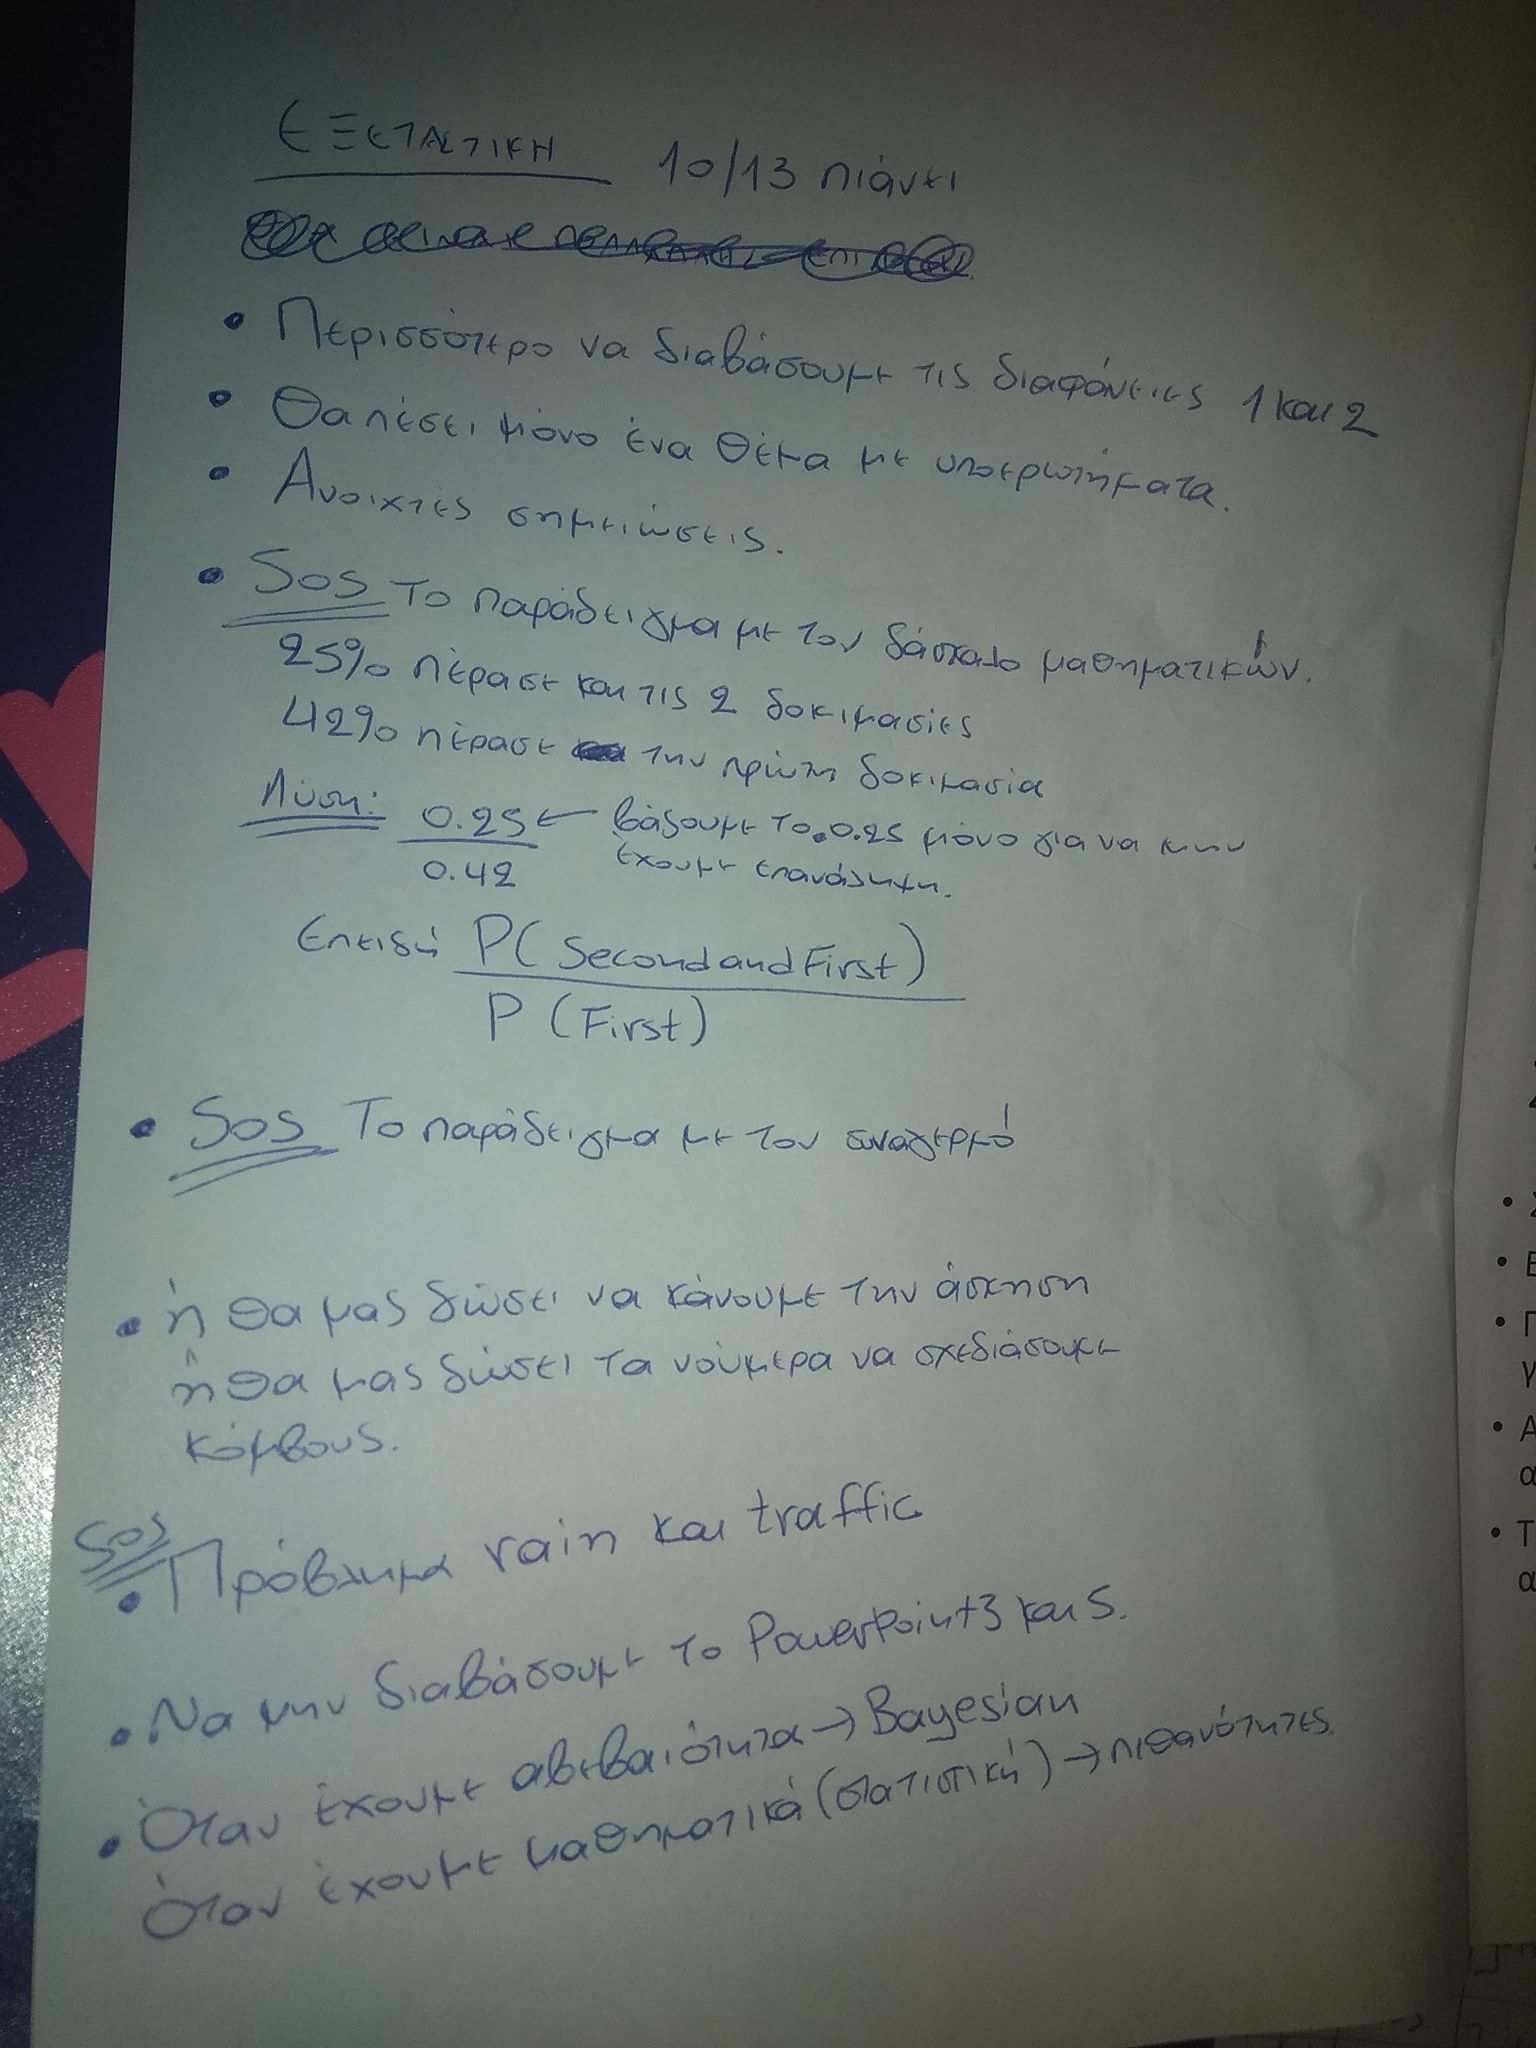 ΕΞΕΤΑΣΤΙΚΗ 10/13 πιάνει
• Περισσότερο να διαβάσουμε τις διαφάνειες 1 και 2
• Θα πέσει μόνο ένα θέμα με υποερωτήματα.
• Ανοιχτές σημειώσεις.
• SOS Το παράδειγμα με τον δάσκαλο μαθηματικών.
25% πέρασε και τις 2 δοκιμασίες
42% πέρασε την πρώτη δοκιμασία
Λύση: 0.25 ← βάζουμε το 0.25 μόνο για να μην
0.42 έχουμε επανάληψη.
Επειδή P(Second and First)
P (First)
• SOS Το παράδειγμα με τον συναγερμό
• ή θα μας δώσει να κάνουμε την άσκηση
ή θα μας δώσει τα νούμερα να σχεδιάσουμε
κόμβους.
SOS
• Πρόβλημα rain και traffic
• Να μην διαβάσουμε το PowerPoint 3 και 5.
• Όταν έχουμε αβεβαιότητα → Bayesian
Όταν έχουμε μαθηματικά (στατιστική) → πιθανότητες